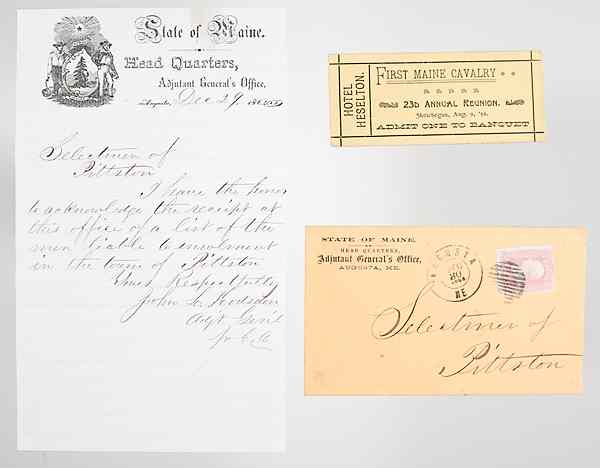 State of Maine.
Head Quarters,
Adjutant General's Office,
Augusta, Dec 29, 186
Selectmen of
Pittston
I have the honor
to acknowledge the receipt at
this office of a list of the
men liable to enrolment
in the town of Pittston
Yours Respectfully
John L. Hodsdon
Adjt Gen'l
HOTEL
HESELTON.
FIRST MAINE CAVALRY
23D ANNUAL REUNION.
Skowhegan, Aug.
ADMIT ONE TO BANQUET
STATE OF MAINE.
HEAD QUARTERS,
Adjutant General's Office,
AUGUSTA, ME.
AUGUSTA
DEC
30
ME
Selectmen of
Pittston